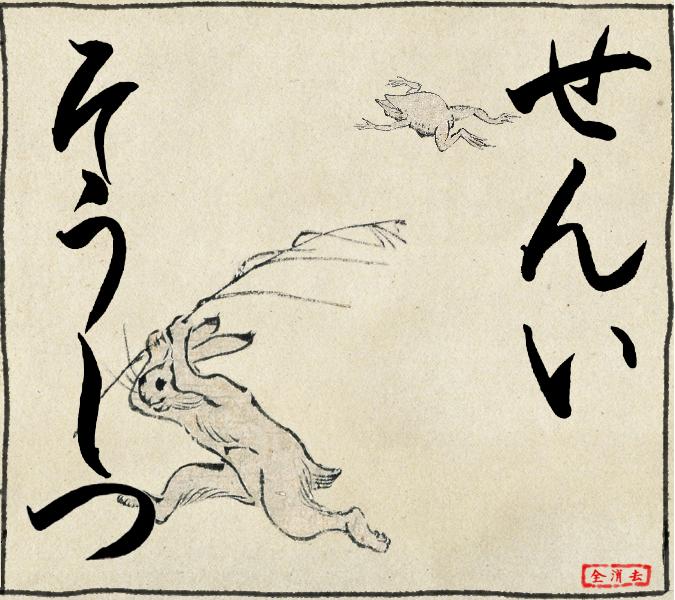 せんい
そうしつ
全消去